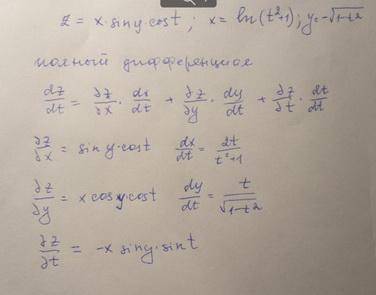 z = x · sin y · cos t ; x = ln(t²+1) ; y = -√1-t²
полный дифференциал
dz/dt = ∂z/∂x · dx/dt + ∂z/∂y · dy/dt + ∂z/∂t · dt/dt
∂z/∂x = sin y · cos t dx/dt = 2t/t²+1
∂z/∂y = x cos y · cos t dy/dt = t/√1-t²
∂z/∂t = -x sin y · sin t